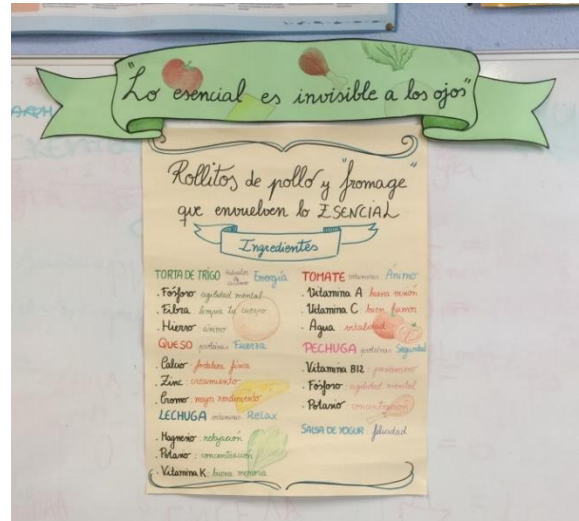 "Lo esencial es invisible a los ojos"
Rollitos de pollo y "fromage"
que envuelven lo ESENCIAL
Ingredientes
TORTA DE TRIGO hidratos de carbono Energía
· Fósforo agilidad mental
· Fibra limpia tu cuerpo
· Hierro ánimo
QUESO proteínas Fuerza
· Calcio: fortaleza física
· Zinc: crecimiento
· Cromo: mejor rendimiento
LECHUGA vitaminas Relax
· Magnesio: relajación
· Potasio: concentración
· Vitamina K: buena memoria
TOMATE vitaminas Ánimo
· Vitamina A buena visión
· Vitamina C: buen humor
· Agua vitalidad
PECHUGA proteínas Seguridad
· Vitamina B12:
· Fósforo: agilidad mental
· Potasio concentración
SALSA DE YOGUR felicidad